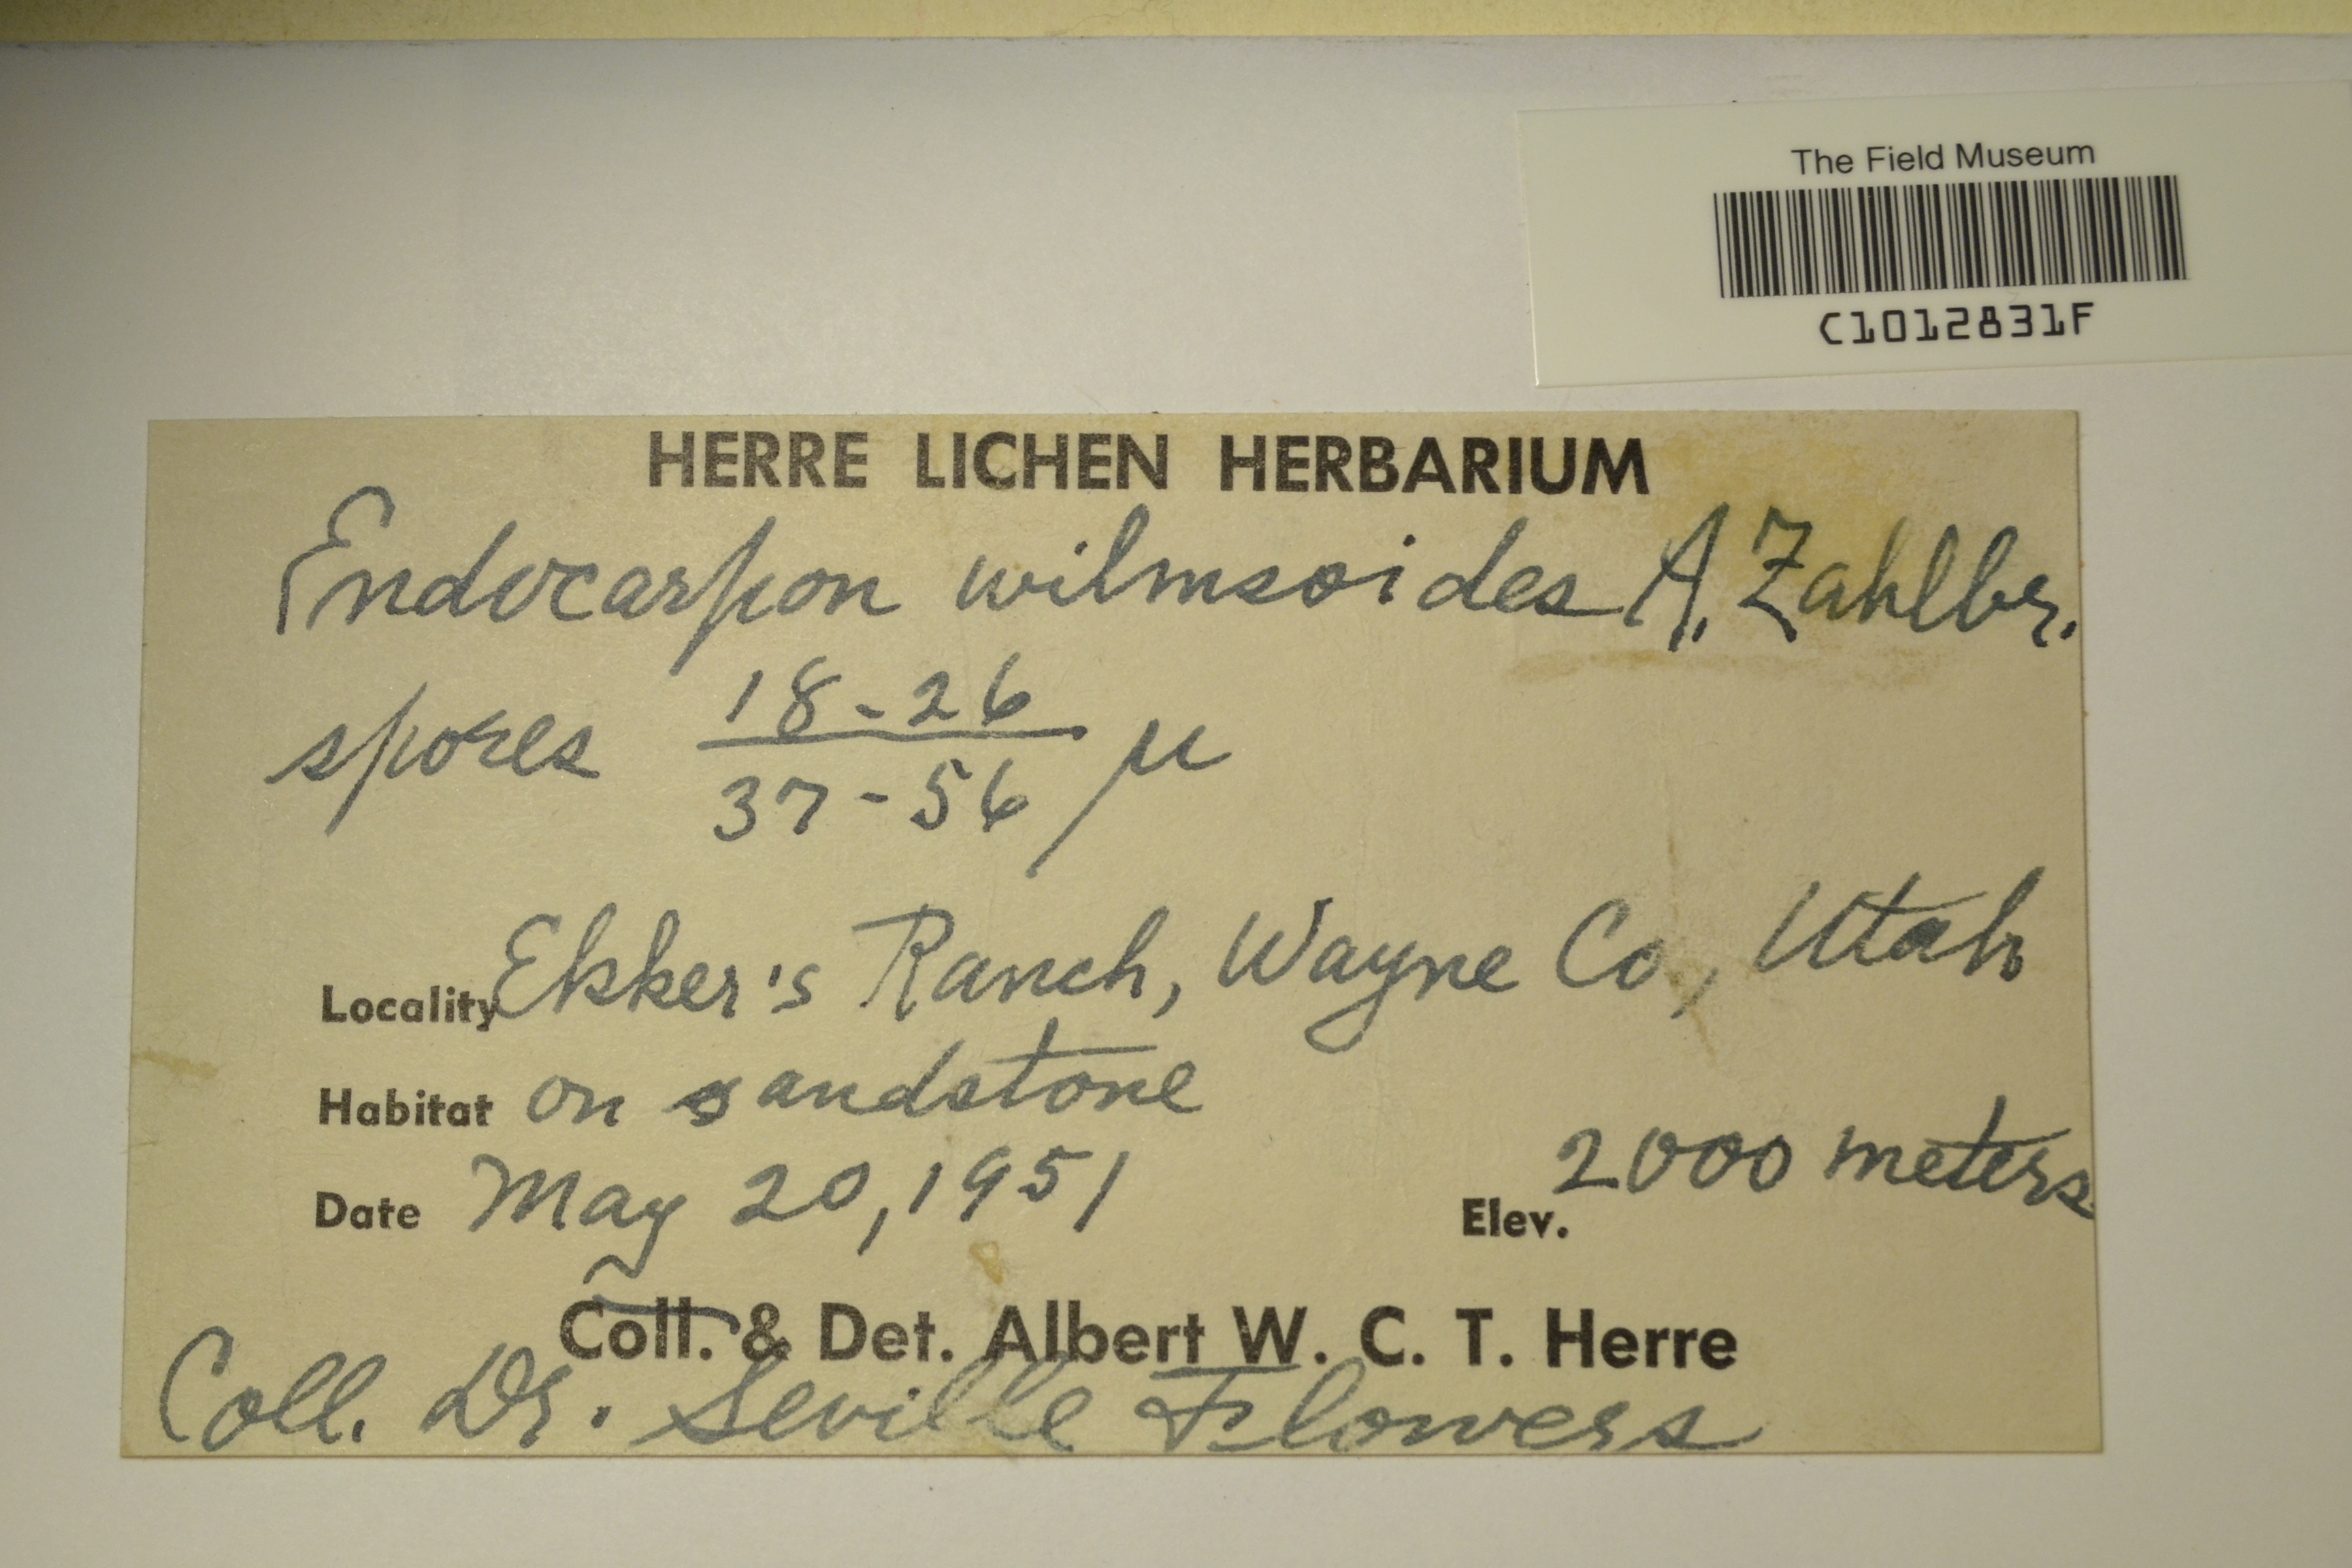 The Field Museum
C1012831F
HERRE LICHEN HERBARIUM
Endocarpon wilmsoides A. Zahlbr.
spores 18-26
37-56 µ
Locality Ekker's Ranch, Wayne Co., Utah
Habitat on sandstone
Date May 20, 1951 Elev. 2000 meters
Coll. & Det. Albert W. C. T. Herre
Coll. Dr. Seville Flowers